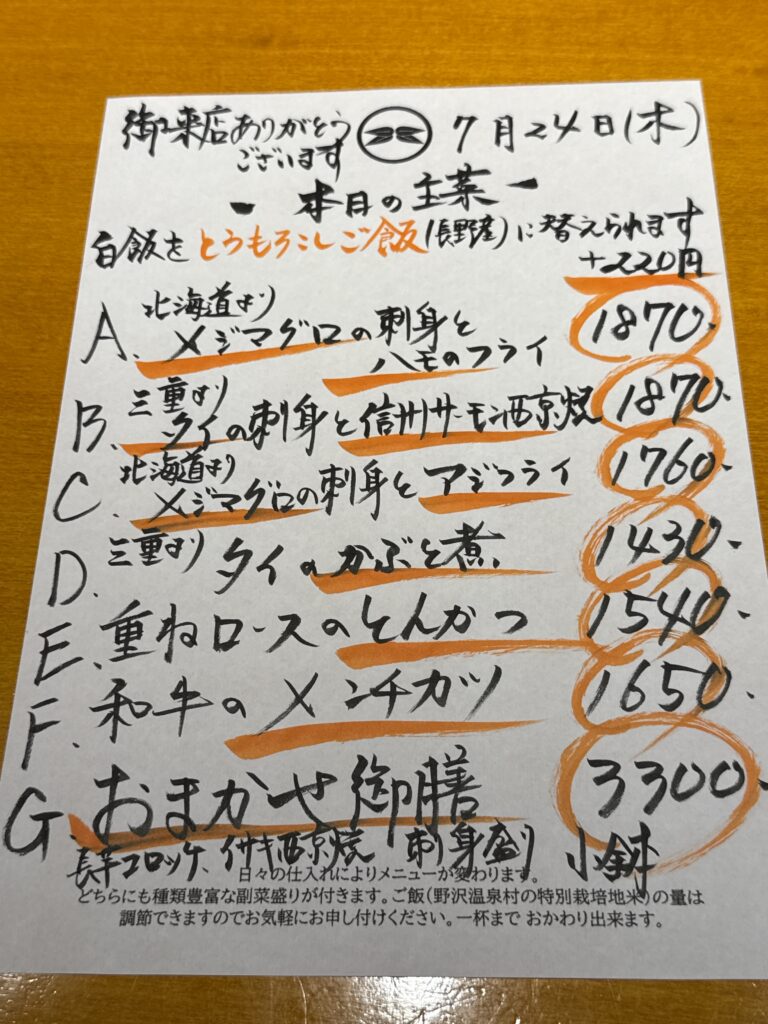 御来店ありがとう
ございます
7月24日(木)
- 本日の主菜 -
白飯をとうもろこしご飯(長野産)に替えられます
+220円
A. 北海道より
メジマグロの刺身と
ハモのフライ 1870.
B. 三重より
タイの刺身と信州サーモン西京焼 1870.
C. 北海道より
メジマグロの刺身とアジフライ 1760.
D. 三重より タイのかぶと煮. 1430.
E. 重ねロースのとんかつ 1540.
F. 和牛のメンチカツ 1650.
G. おまかせ御膳 3300.
長芋コロッケ、イサキ西京焼 刺身盛り 小鉢
日々の仕入れによりメニューが変わります。
どちらにも種類豊富な副菜盛りが付きます。ご飯(野沢温泉村の特別栽培地米)の量は
調節できますのでお気軽にお申し付けください。一杯まで おかわり出来ます。